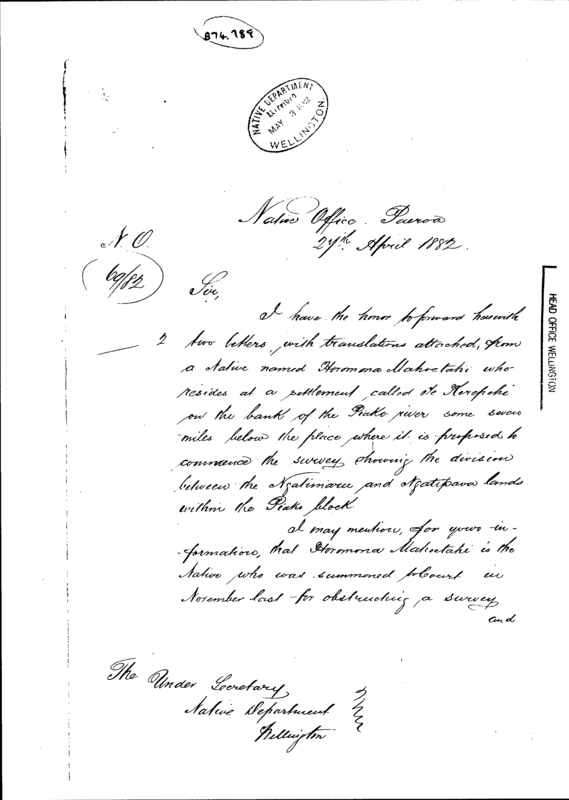 874.789
NATIVE DEPARTMENT
Received
MAY 3 1882
WELLINGTON.
Native Office. Paeroa
27th April 1882.
N.O.
69/82
Sir,
I have the honor to forward herewith
2 two letters, with translations attached, from
a Native named Horomona Mahoetahi who
resides at a settlement called Te Kerepehi
on the bank of the Piako river some seven
miles below the place where it is proposed to
commence the survey showing the division
between the Ngatimaru and Ngatipaoa lands
within the Piako block.
I may mention, for your in-
-formation, that Horomona Mahoetahi is the
Native who was summoned to Court in
November last for obstructing a survey
and
The Under Secretary
Native Department
Wellington
HEAD OFFICE WELLINGTON